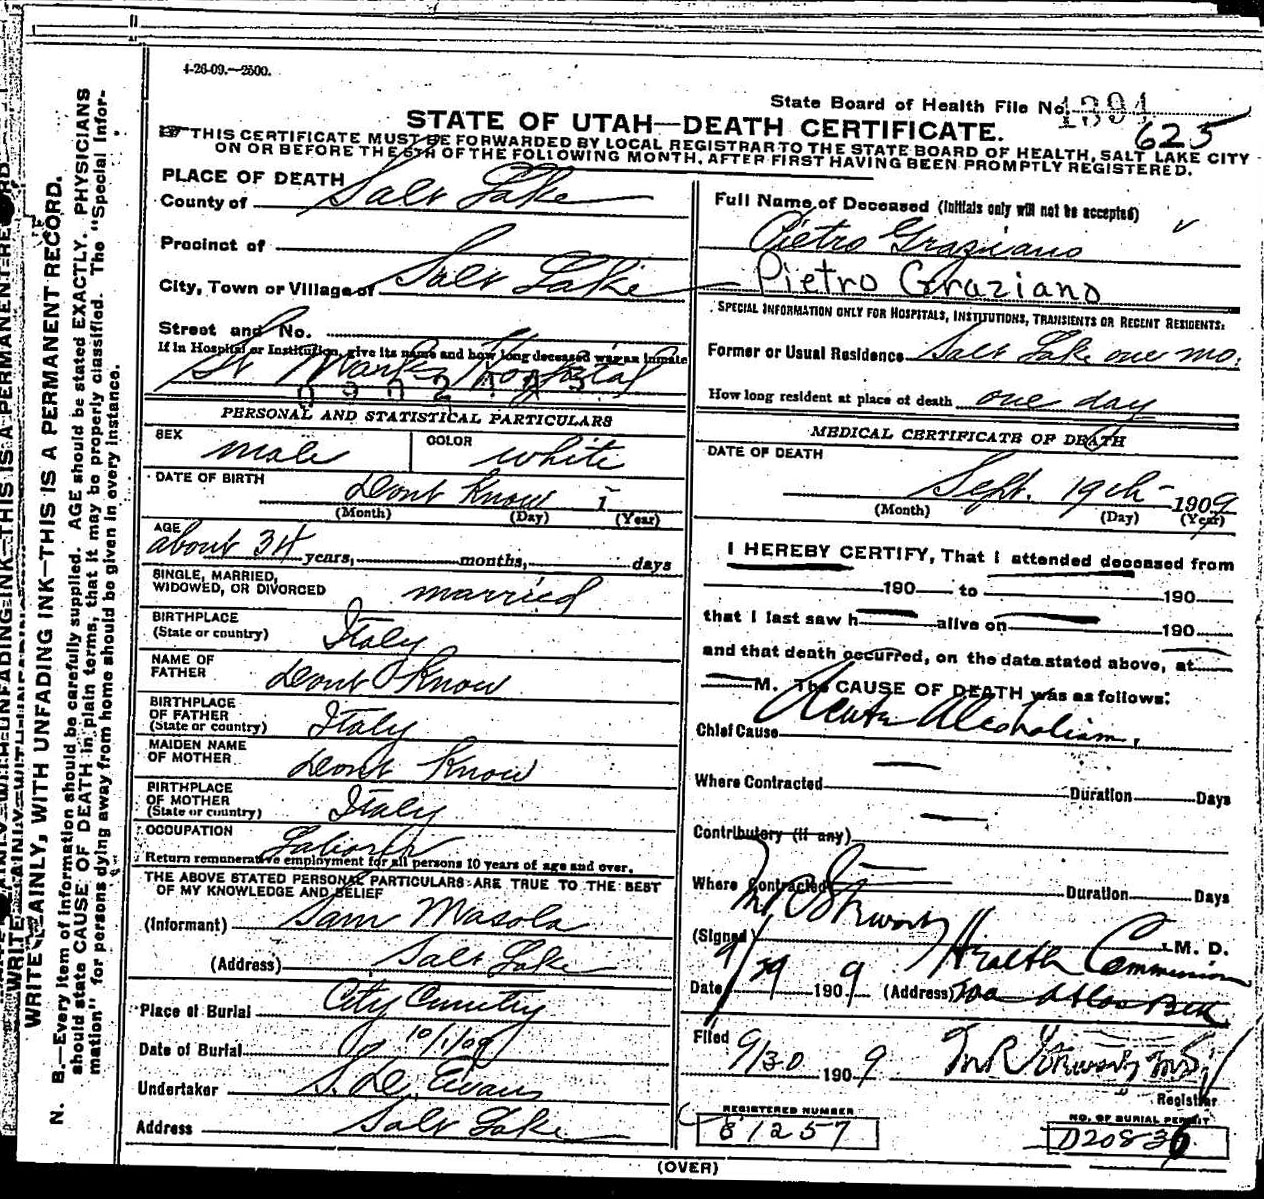 4-26-09.—2500.
State Board of Health File No. 1394
625
STATE OF UTAH—DEATH CERTIFICATE.
THIS CERTIFICATE MUST BE FORWARDED BY LOCAL REGISTRAR TO THE STATE BOARD OF HEALTH, SALT LAKE CITY
ON OR BEFORE THE 5TH OF THE FOLLOWING MONTH, AFTER FIRST HAVING BEEN PROMPTLY REGISTERED.
PLACE OF DEATH
County of Salt Lake
Precinct of
City, Town or Village of Salt Lake
Street and No.
If in Hospital or Institution, give its name and how long deceased was an inmate
St Marks Hospital
PERSONAL AND STATISTICAL PARTICULARS
SEX male COLOR white
DATE OF BIRTH Dont Know 1
(Month) (Day) (Year)
AGE about 34 years, months, days
SINGLE, MARRIED,
WIDOWED, OR DIVORCED married
BIRTHPLACE
(State or country) Italy
NAME OF
FATHER Dont Know
BIRTHPLACE
OF FATHER
(State or country) Italy
MAIDEN NAME
OF MOTHER Dont Know
BIRTHPLACE
OF MOTHER
(State or country) Italy
OCCUPATION Laborer
Return remunerative employment for all persons 10 years of age and over.
THE ABOVE STATED PERSONAL PARTICULARS ARE TRUE TO THE BEST
OF MY KNOWLEDGE AND BELIEF
(Informant) Sam Masola
(Address) Salt Lake
Place of Burial City Cemetry
Date of Burial 10/1/09
Undertaker S. D. Evans
Address Salt Lake
Full Name of Deceased (Initials only will not be accepted)
Pietro Graziano
Pietro Graziano
SPECIAL INFORMATION ONLY FOR HOSPITALS, INSTITUTIONS, TRANSIENTS OR RECENT RESIDENTS:
Former or Usual Residence Salt Lake one mo.
How long resident at place of death one day
MEDICAL CERTIFICATE OF DEATH
DATE OF DEATH
Sept. 19th 1909
(Month) (Day) (Year)
I HEREBY CERTIFY, That I attended deceased from
190 to 190
that I last saw h alive on 190
and that death occurred, on the date stated above, at
M. The CAUSE OF DEATH was as follows:
Chief Cause Acute Alcoholism,
Where Contracted Duration Days
Contributory (if any)
Where Contracted Duration Days
(Signed) M. D.
Health Commission
Date 9/29 1909 (Address)
Filed 9/30 1909
Registrar
REGISTERED NUMBER
81257
NO. OF BURIAL PERMIT
D20836
(OVER)
WRITE PLAINLY, WITH UNFADING INK—THIS IS A PERMANENT RECORD.
N. B.—Every item of information should be carefully supplied. AGE should be stated EXACTLY. PHYSICIANS
should state CAUSE OF DEATH in plain terms, that it may be properly classified. The "Special Infor-
mation" for persons dying away from home should be given in every instance.